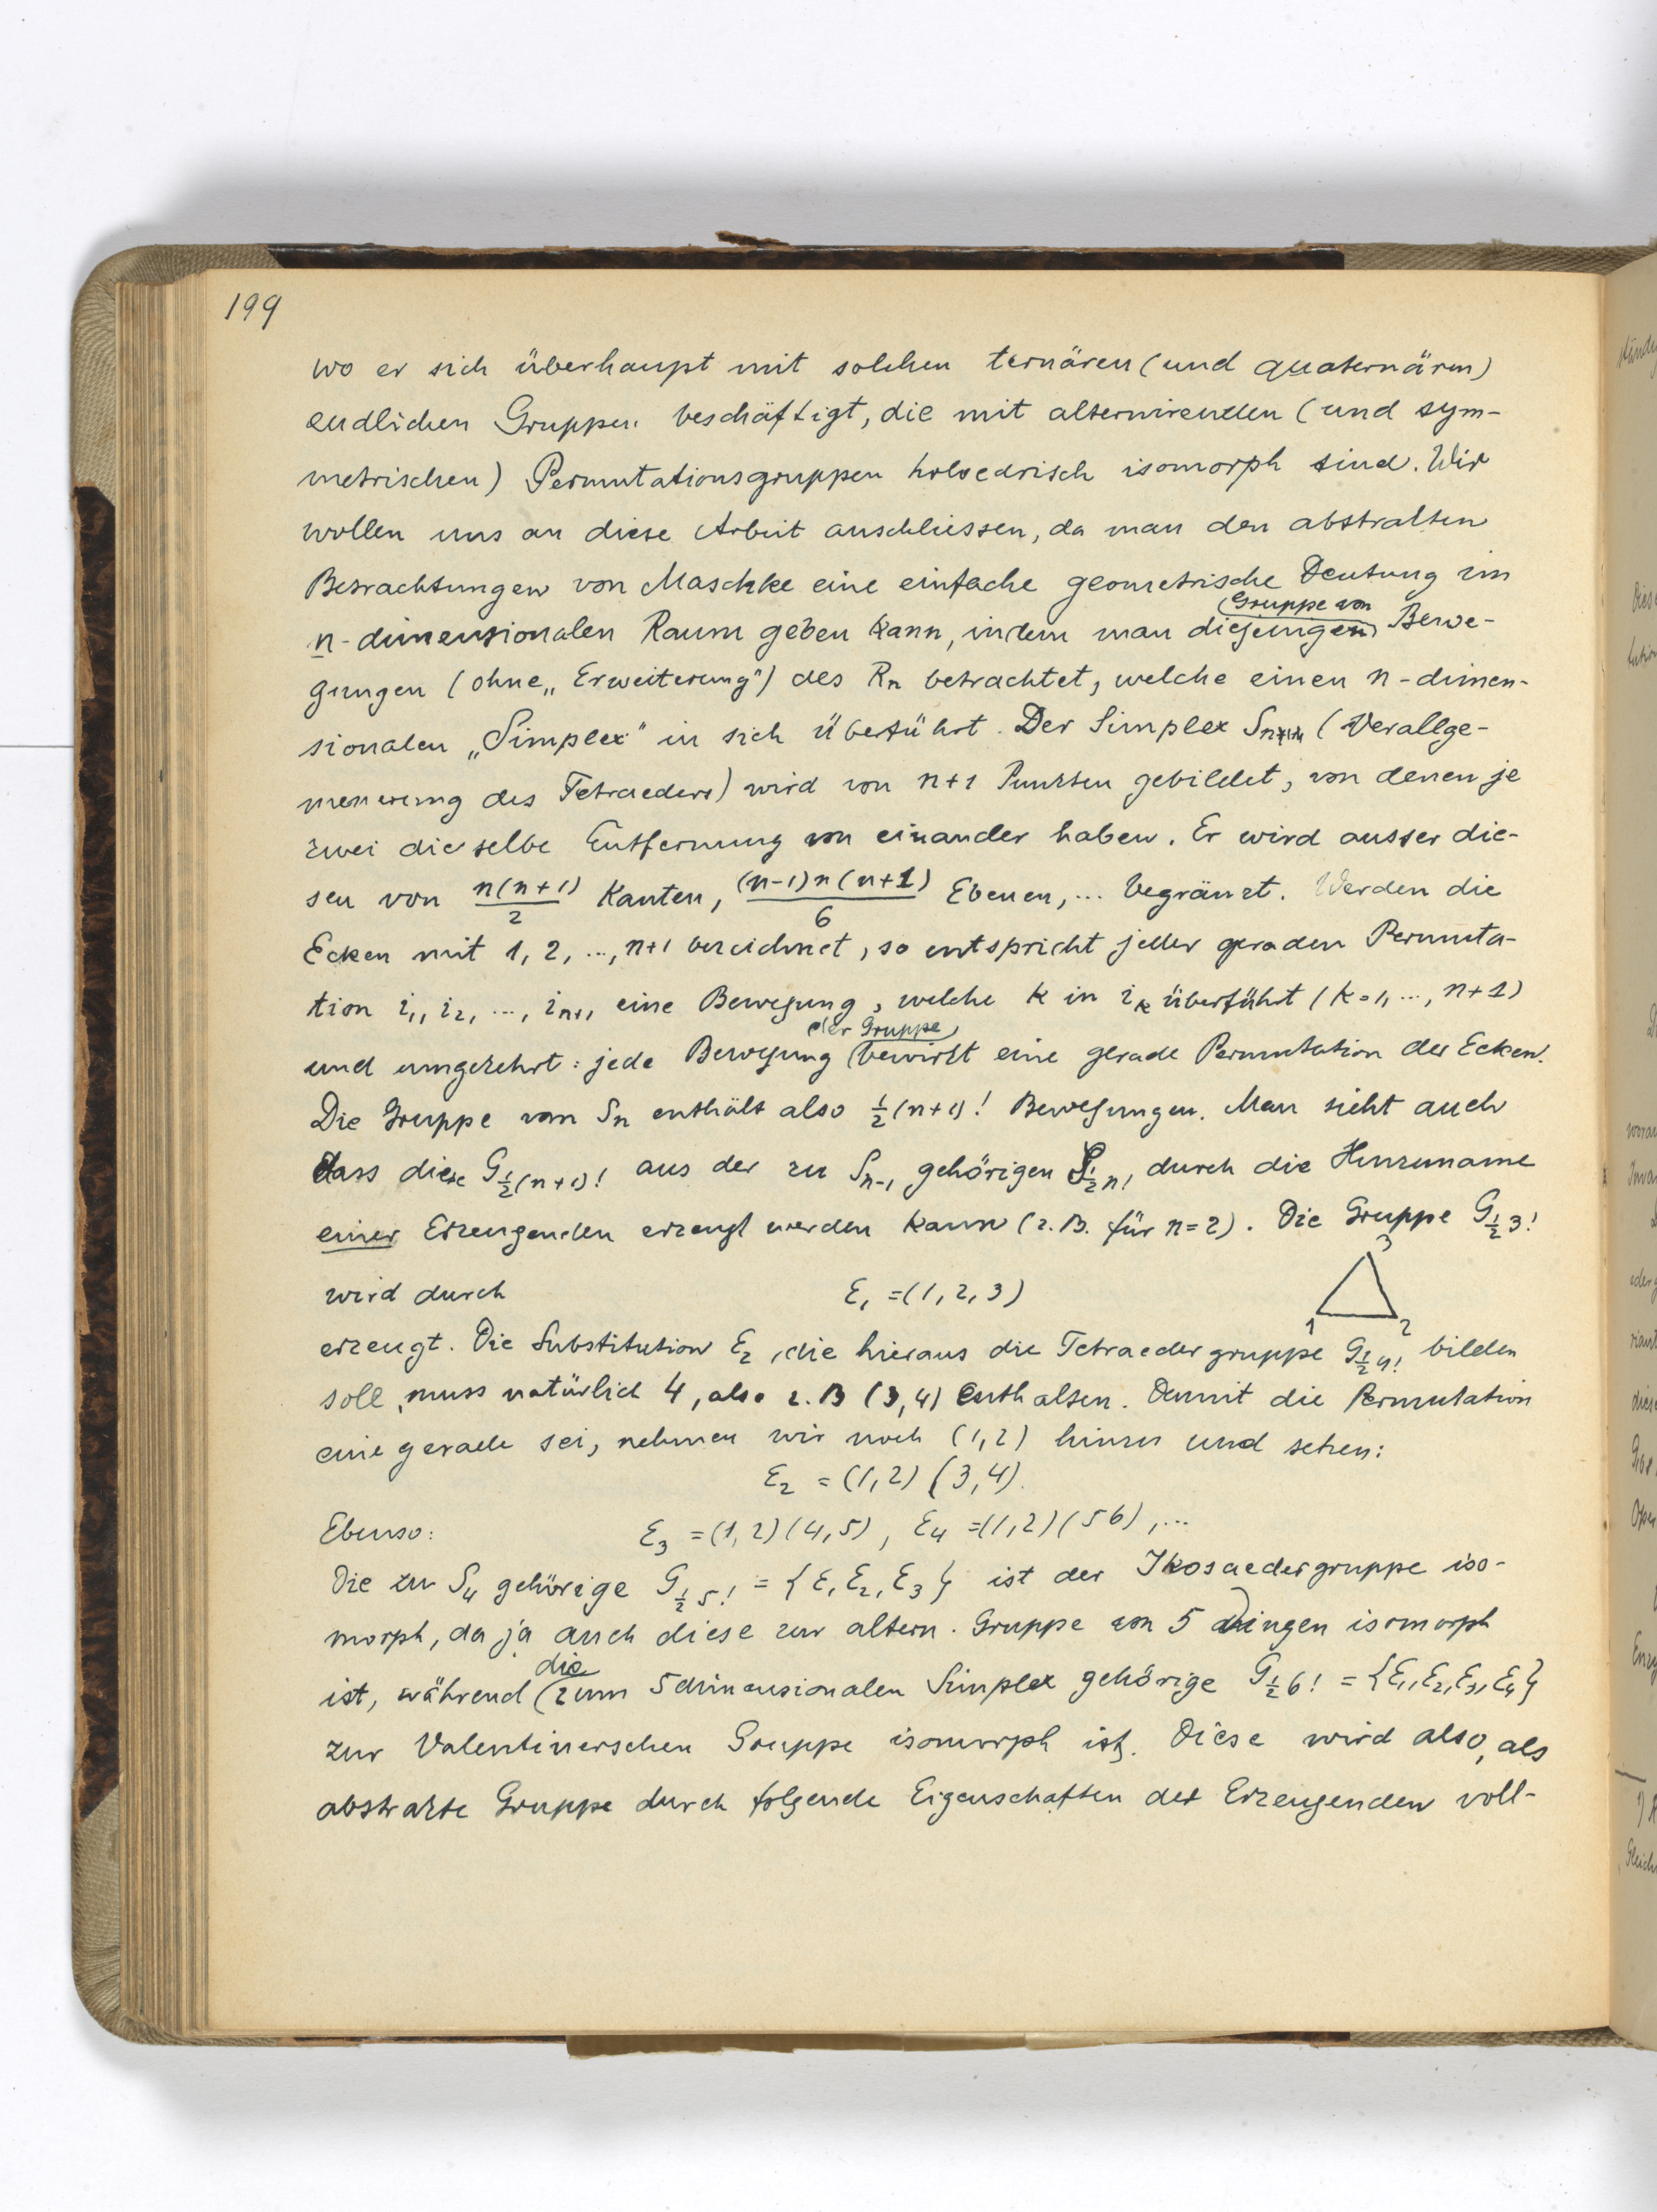 199
wo er sich überhaupt mit solchen ternären (und quaternären)
endlichen Gruppen beschäftigt, die mit alternirenden (und sym-
metrischen) Permutationsgruppen holoedrisch isomorph sind. Wir
wollen uns an diese Arbeit anschliessen, da man den abstrakten
Betrachtungen von Maschke eine einfache geometrische Deutung im
Gruppe von
n-dimensionalen Raum geben kann, indem man diejenigen Bewe-
gungen (ohne „Erweiterung") des Rn betrachtet, welche einen n-dimen-
sionalen „Simplex" in sich überführt. Der Simplex Sn (Verallge-
meinerung des Tetraeders) wird von n+1 Punkten gebildet, von denen je
zwei dieselbe Entfernung von einander haben. Er wird ausser die-
sen von n(n+1)/2 Kanten, (n-1)n(n+1)/6 Ebenen, ... begränzt. Werden die
Ecken mit 1, 2, ..., n+1 bezeichnet, so entspricht jeder geraden Permuta-
tion i1, i2, ..., in+1 eine Bewegung, welche k in ik überführt (k=1, ..., n+1)
der Gruppe
und umgekehrt: jede Bewegung bewirkt eine gerade Permutation der Ecken.
Die Gruppe von Sn enthält also ½(n+1)! Bewegungen. Man sieht auch
dass diese G½(n+1)! aus der zu Sn-1 gehörigen G½n! durch die Hinzuname
einer Erzeugenden erzeugt werden kann (z.B. für n=2). Die Gruppe G½3!
3
wird durch E1 = (1, 2, 3)
1 2
erzeugt. Die Substitution E2, die hieraus die Tetraedergruppe G½4! bilden
soll, muss natürlich 4, also z.B (3,4) enthalten. Damit die Permutation
eine gerade sei, nehmen wir noch (1,2) hinzu und setzen:
E2 = (1,2) (3,4).
Ebenso: E3 = (1,2)(4,5), E4 = (1,2)(56), ...
Die zu S4 gehörige G½5! = {E1, E2, E3} ist der Ikosaedergruppe iso-
morph, da ja auch diese zur altern. Gruppe von 5 Dingen isomorph
die
ist, während zum 5dimensionalen Simplex gehörige G½6! = {E1, E2, E3, E4}
zur Valentinerschen Gruppe isomorph ist. Diese wird also, als
abstrakte Gruppe durch folgende Eigenschaften der Erzeugenden voll-